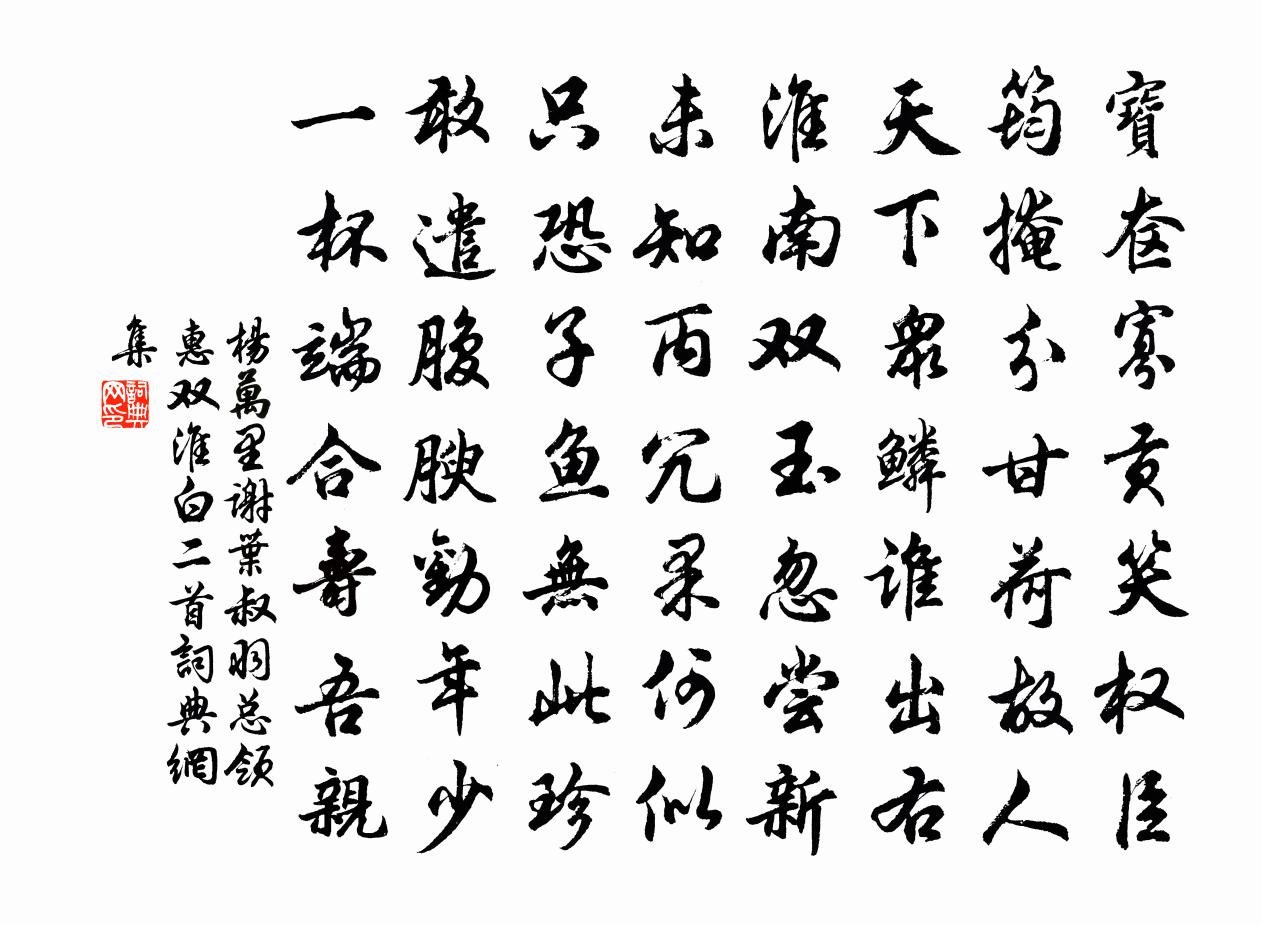 寶奁寡贡笑权臣
筠掩分甘荷故人
天下眾鱗谁出右
淮南双玉忽尝新
未知丙穴果何似
只恐子鱼無此珍
敢遣腹腴勸年少
一杯端合壽吾親
楊萬里谢葉叔羽总领
惠双淮白二首詞典網
集
詞典网印